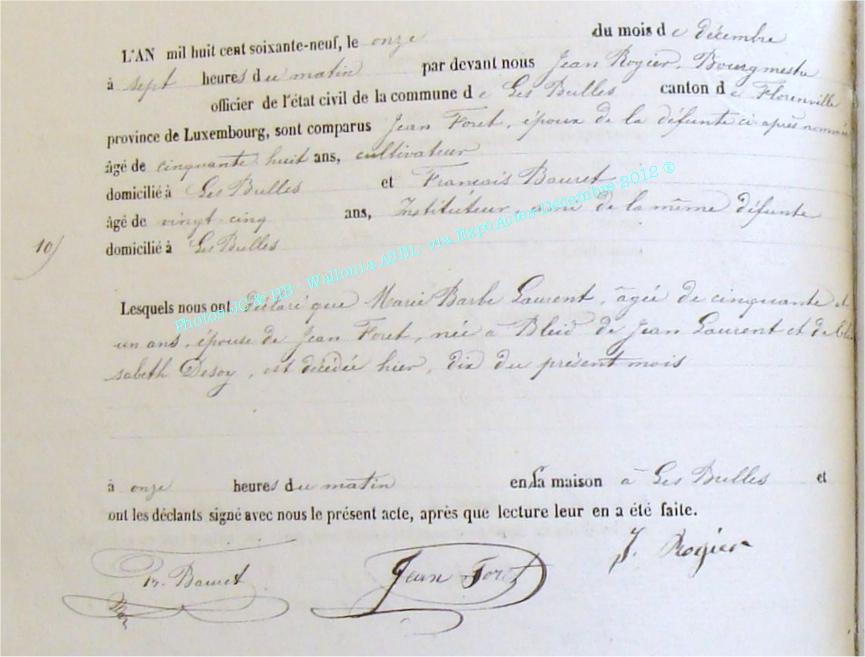 L'AN mil huit cent soixante-neuf, le onze du mois de décembre
à sept heures du matin par devant nous Jean Rogier, Bourgmestre
officier de l'état civil de la commune de Les Bulles canton de Florenville
province de Luxembourg, sont comparus Jean Foret, époux de la défunte ci après nommée
âgé de cinquante huit ans, cultivateur
domicilié à Les Bulles et François Bauret
âgé de vingt cinq ans, Instituteur, ami de la même défunte
10) domicilié à Les Bulles
Lesquels nous ont déclaré que Marie Barbe Laurent, âgée de cinquante et
un ans, épouse de Jean Foret, née à Bleid de Jean Laurent et de Eli
sabeth Desoy, est décédée hier, dix du présent mois
à onze heures du matin en sa maison à Les Bulles et
ont les déclants signé avec nous le présent acte, après que lecture leur en a été faite.
Fr. Bauret Jean Foret J. Rogier
Photos JC & HB - Wallonia ASBL via ExpoActes Décembre 2012 ®